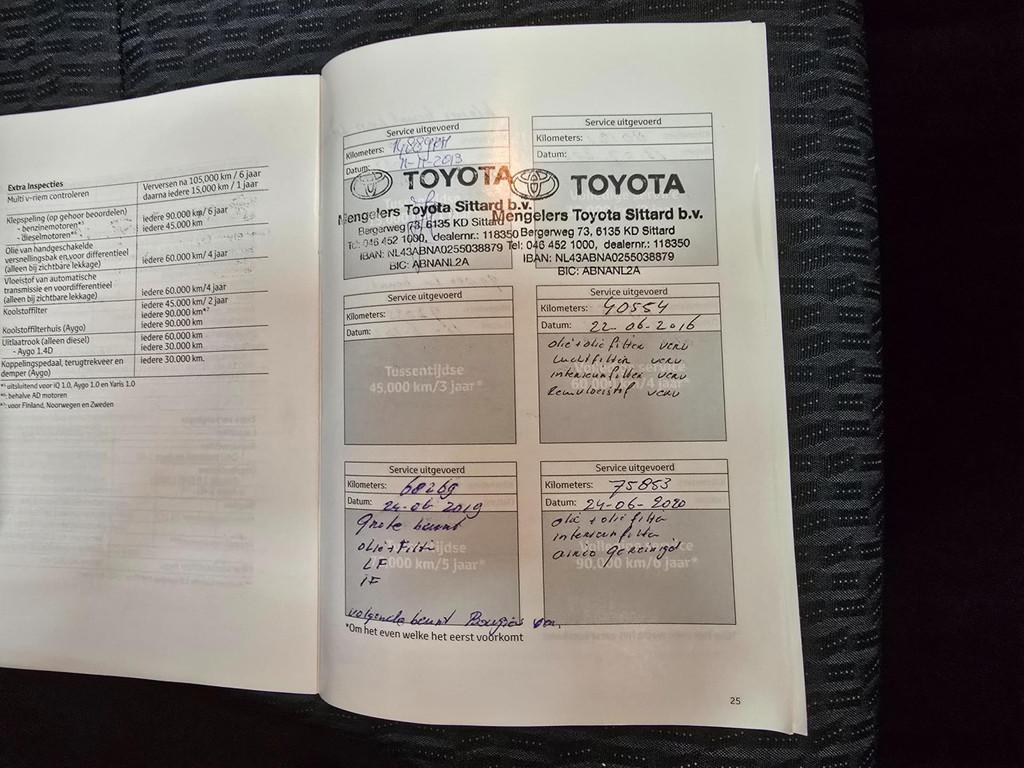 Extra Inspecties
Multi v-riem controleren
Verversen na 105,000 km / 6 jaar
daarna iedere 15,000 km / 1 jaar
Klepspeling (op gehoor beoordelen)
- benzinemotoren
- dieselmotoren
iedere 90.000 km/ 6 jaar
iedere 45.000 km
Olie van handgeschakelde
versnellingsbak en,voor differentieel
(alleen bij zichtbare lekkage)
iedere 60.000 km/ 4 jaar
Vloeistof van automatische
transmissie en voordifferentieel
(alleen bij zichtbare lekkage)
iedere 60.000 km/4 jaar
Koolstoffilter
iedere 45.000 km/ 2 jaar
iedere 90.000 km
Koolstoffilterhuis (Aygo)
iedere 90.000 km
Uitlaatrook (alleen diesel)
- Aygo 1.4D
iedere 60.000 km
iedere 30.000 km
Koppelingspedaal, terugtrekveer en
demper (Aygo)
iedere 30.000 km.
uitsluitend voor iQ 1.0, Aygo 1.0 en Yaris 1.0
behalve AD motoren
voor Finland, Noorwegen en Zweden
Service uitgevoerd
Kilometers:
Datum: 2013
TOYOTA
Mengelers Toyota Sittard b.v.
Bergerweg 73, 6135 KD Sittard
Tel: 046 452 1000, dealernr.: 118350
IBAN: NL43ABNA0255038879
BIC: ABNANL2A
Service uitgevoerd
Kilometers:
Datum:
TOYOTA
Mengelers Toyota Sittard b.v.
Bergerweg 73, 6135 KD Sittard
Tel: 046 452 1000, dealernr.: 118350
IBAN: NL43ABNA0255038879
BIC: ABNANL2A
Service uitgevoerd
Kilometers:
Datum:
Tussentijdse
45,000 km/3 jaar*
Service uitgevoerd
Kilometers: 40554
Datum: 22-06-2016
olie + olie filter verv
Luchtfilter verv
interieurfilter verv
Remvloeistof verv
60,000 km/4 jaar*
Service uitgevoerd
Kilometers: 68269
Datum: 24-06-2019
Grote beurt
olie + Filter
LF
IF
000 km/5 jaar*
volgende beurt Bougies
Service uitgevoerd
Kilometers: 75853
Datum: 24-06-2020
olie + olie filter
interieurfilter
airco gereinigd
90,000 km/6 jaar*
*Om het even welke het eerst voorkomt
25